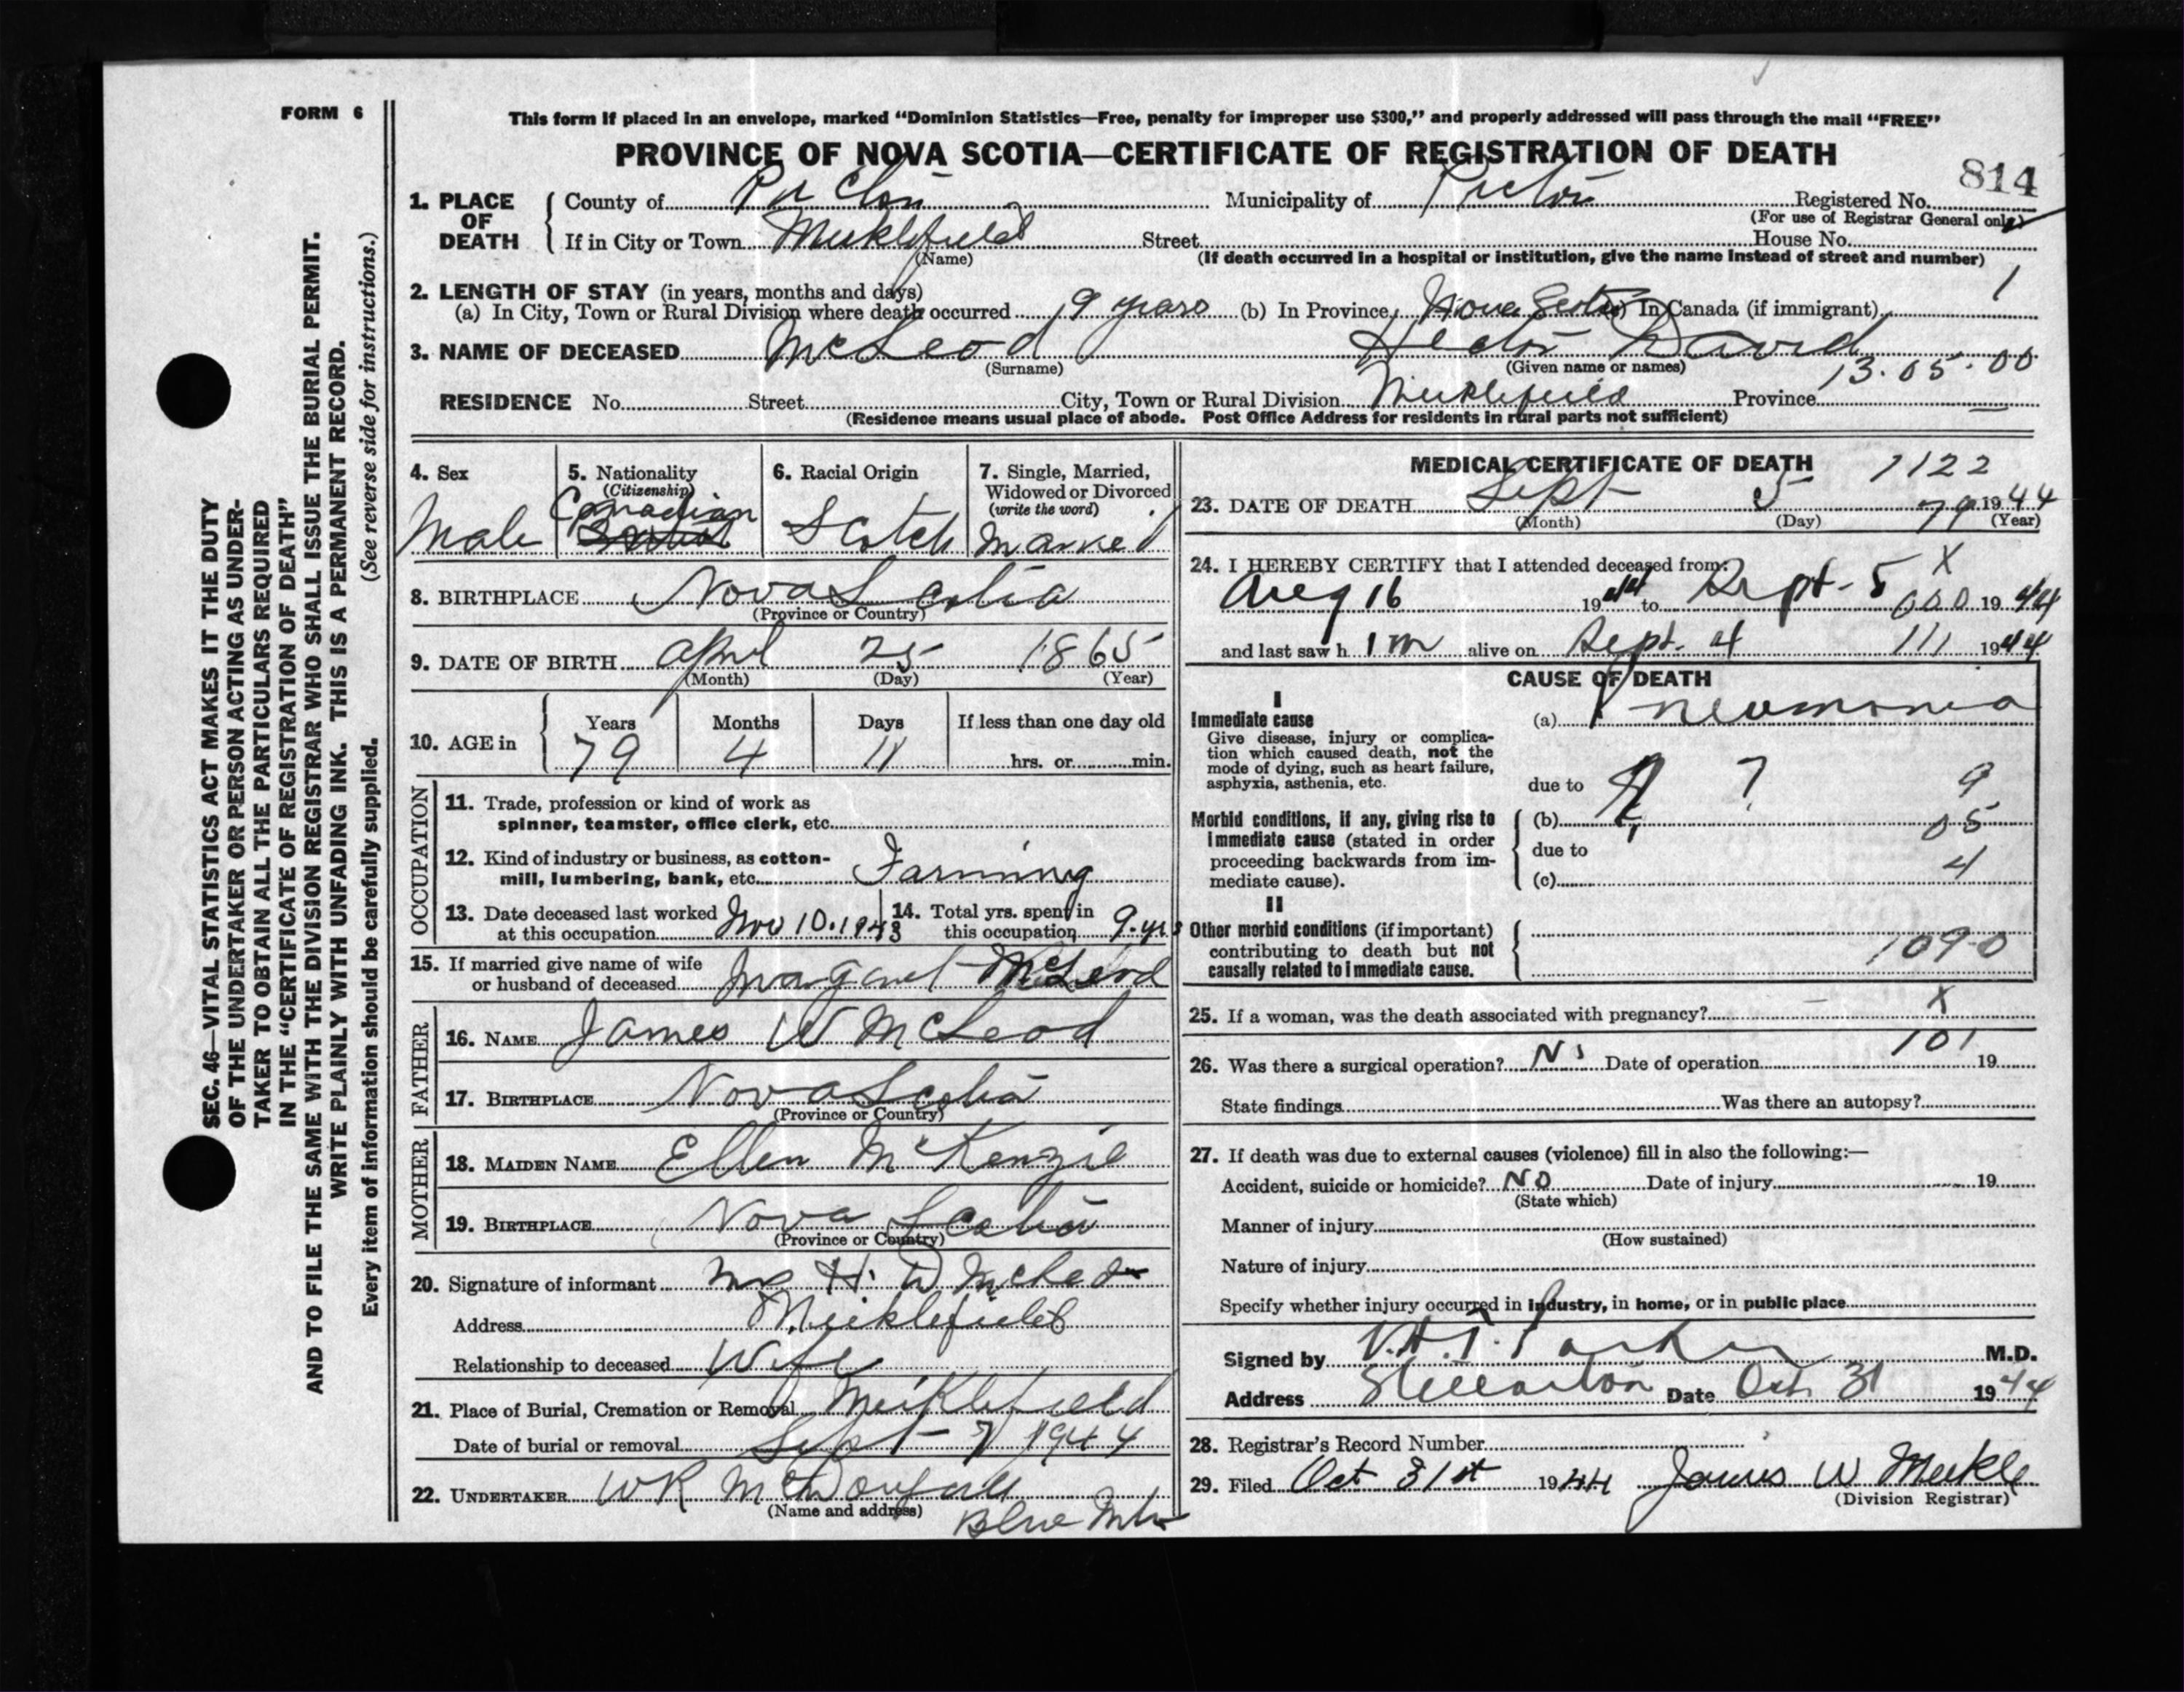 FORM 6
This form if placed in an envelope, marked "Dominion Statistics—Free, penalty for improper use $300," and properly addressed will pass through the mail "FREE"
PROVINCE OF NOVA SCOTIA—CERTIFICATE OF REGISTRATION OF DEATH
814
1. PLACE OF DEATH County of Pictou Municipality of Pictou Registered No.
(For use of Registrar General only)
If in City or Town Meiklefield Street House No.
(Name) (If death occurred in a hospital or institution, give the name instead of street and number)
2. LENGTH OF STAY (in years, months and days) 1
(a) In City, Town or Rural Division where death occurred 9 years (b) In Province Nova Scotia (c) In Canada (if immigrant)
3. NAME OF DECEASED McLeod Hector David
(Surname) (Given name or names) 13.05.00
RESIDENCE No. Street City, Town or Rural Division Meiklefield Province
(Residence means usual place of abode. Post Office Address for residents in rural parts not sufficient)
4. Sex Male
5. Nationality (Citizenship) Canadian
6. Racial Origin Scotch
7. Single, Married, Widowed or Divorced (write the word) Married
8. BIRTHPLACE Nova Scotia
(Province or Country)
9. DATE OF BIRTH April 25 1865
(Month) (Day) (Year)
10. AGE in Years Months Days If less than one day old
79 4 11 hrs. or min.
OCCUPATION
11. Trade, profession or kind of work as
spinner, teamster, office clerk, etc.
12. Kind of industry or business, as cotton-
mill, lumbering, bank, etc. Farming
13. Date deceased last worked
at this occupation Nov 10. 1943
14. Total yrs. spent in
this occupation 9. yrs
15. If married give name of wife
or husband of deceased Margaret McLeod
FATHER
16. NAME James W McLeod
17. BIRTHPLACE Nova Scotia
(Province or Country)
MOTHER
18. MAIDEN NAME Ellen McKenzie
19. BIRTHPLACE Nova Scotia
(Province or Country)
20. Signature of informant Mrs H. D McLeod
Address Meiklefield
Relationship to deceased Wife
21. Place of Burial, Cremation or Removal Meiklefield
Date of burial or removal Sept 7 1944
22. UNDERTAKER WR McDougall
(Name and address) Blue Mtn
MEDICAL CERTIFICATE OF DEATH 1122
23. DATE OF DEATH Sept 5 79 1944
(Month) (Day) (Year)
24. I HEREBY CERTIFY that I attended deceased from: X
Aug 16 1944 to Sept. 5 000 1944
and last saw h im alive on Sept. 4 111 1944
CAUSE OF DEATH
I
Immediate cause (a) Pneumonia
Give disease, injury or complica-
tion which caused death, not the
mode of dying, such as heart failure,
asphyxia, asthenia, etc.
due to ? 9
Morbid conditions, if any, giving rise to
immediate cause (stated in order
proceeding backwards from im-
mediate cause).
(b) 05
due to
(c) 4
II
Other morbid conditions (if important)
contributing to death but not
causally related to immediate cause.
1090
25. If a woman, was the death associated with pregnancy? X
26. Was there a surgical operation? No Date of operation 101 19
State findings Was there an autopsy?
27. If death was due to external causes (violence) fill in also the following:—
Accident, suicide or homicide? NO Date of injury 19
(State which)
Manner of injury
(How sustained)
Nature of injury
Specify whether injury occurred in industry, in home, or in public place
Signed by V.H.T. Parker M.D.
Address Stellarton Date Oct 31 1944
28. Registrar's Record Number
29. Filed Oct 31st 1944 James W Meikle
(Division Registrar)
SEC. 46—VITAL STATISTICS ACT MAKES IT THE DUTY
OF THE UNDERTAKER OR PERSON ACTING AS UNDER-
TAKER TO OBTAIN ALL THE PARTICULARS REQUIRED
IN THE "CERTIFICATE OF REGISTRATION OF DEATH"
AND TO FILE THE SAME WITH THE DIVISION REGISTRAR WHO SHALL ISSUE THE BURIAL PERMIT.
WRITE PLAINLY WITH UNFADING INK. THIS IS A PERMANENT RECORD.
Every item of information should be carefully supplied. (See reverse side for instructions.)